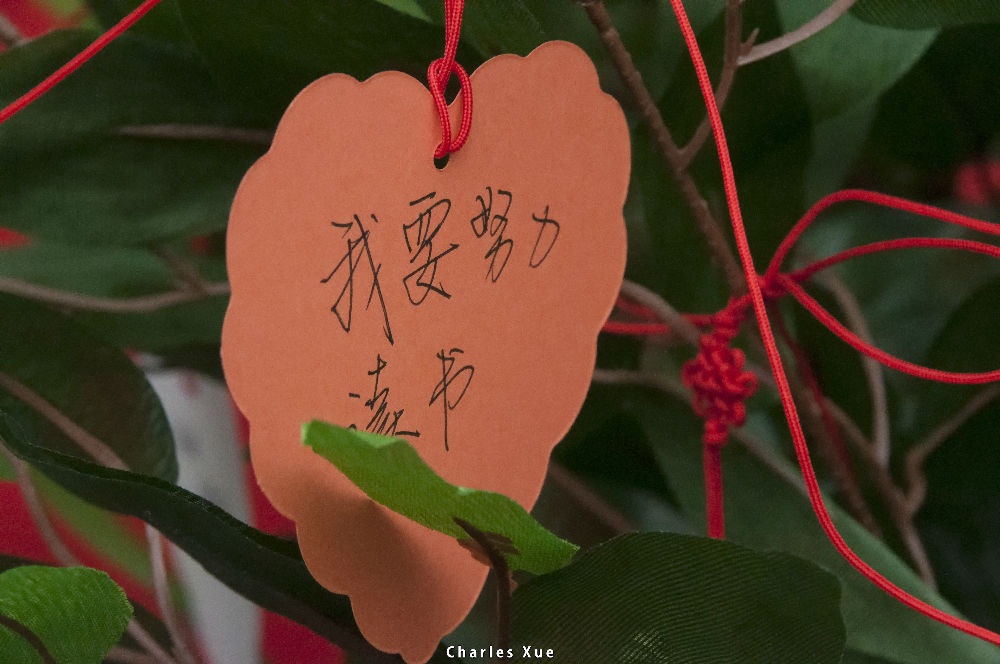 我要努力
读书
Charles Xue